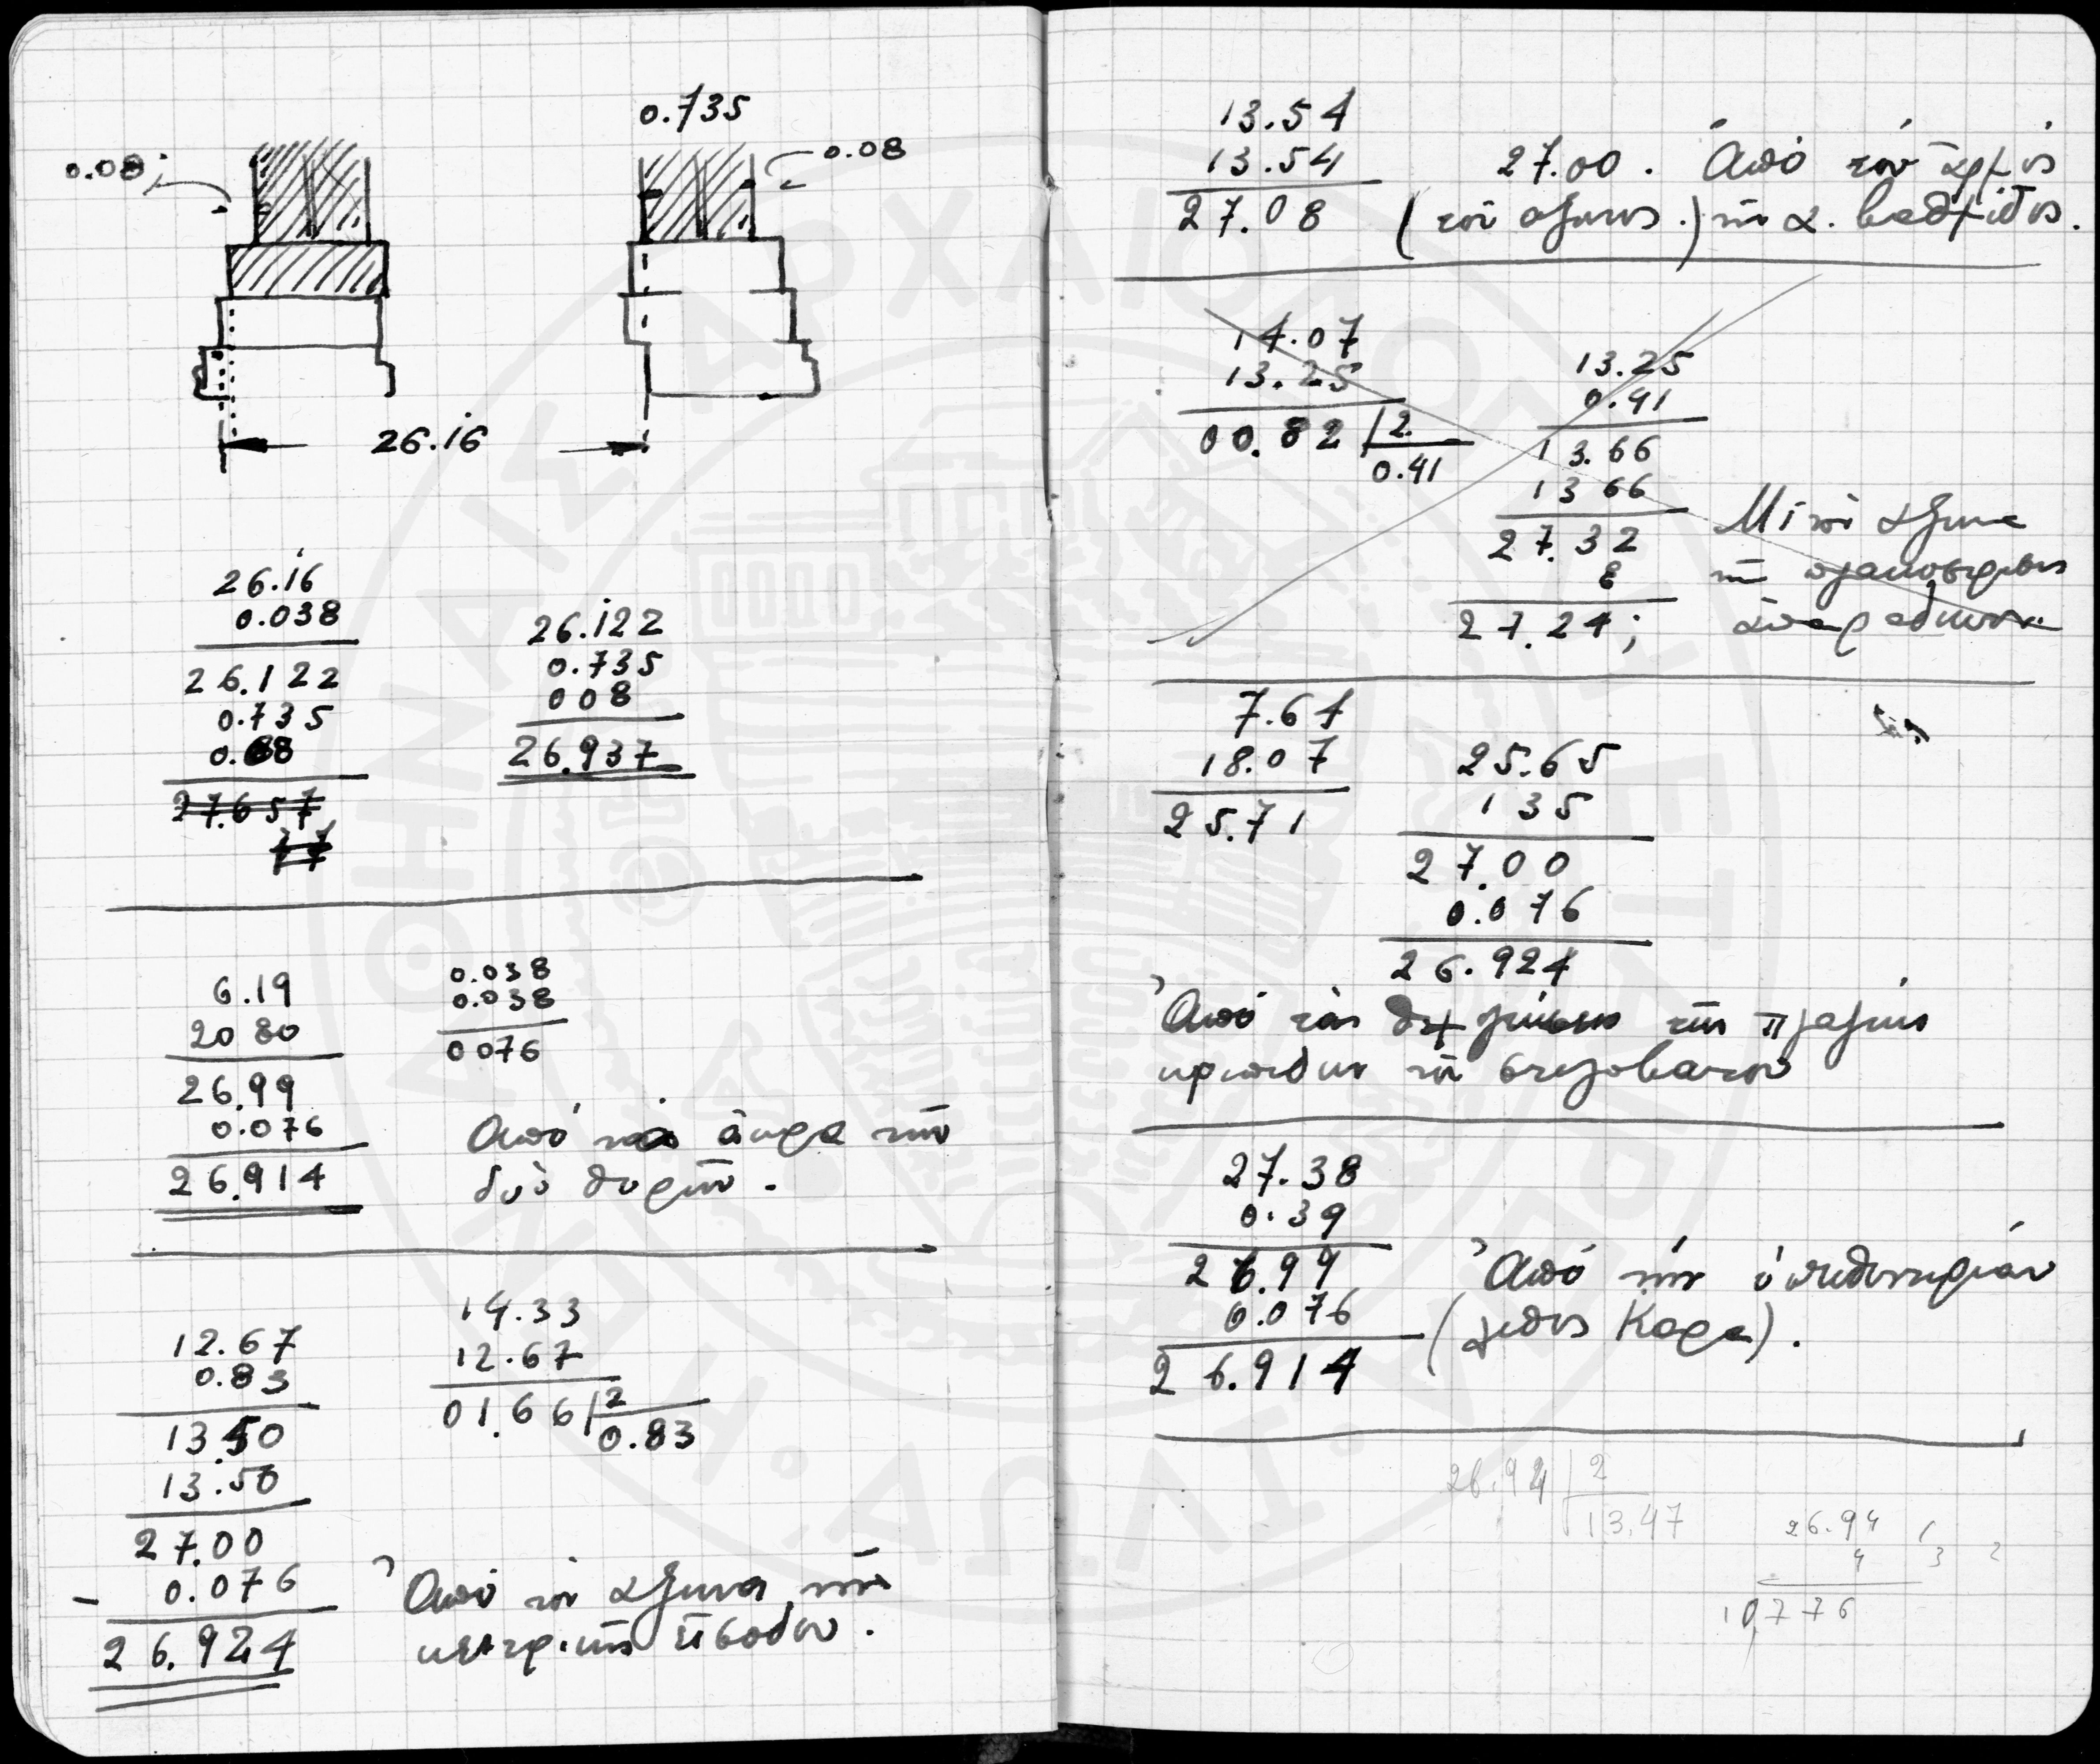 0.735
0.08;
0.08
26.16
26.16
0.038
26.122
0.735
0.08
27.657
77
26.122
0.735
008
26.937
6.19
20 80
26.99
0.076
26.914
0.038
0.038
0076
Ἀπό τὰ ἄκρα τῶν
δύο θυρῶν.
12.67
0.83
13.50
13.50
27.00
- 0.076
26.924
14.33
12.67
01.66 2
0.83
Ἀπό τὸν ἄξονα τῆς
κεντρικῆς εἰσόδου.
13.54
13.54
27.08
27.00. Ἀπό τὸν ἁρμὸν
(τοῦ ἄξονος.) τῆς α. βαθμίδος.
14.07
13.25
00.82 2
0.41
13.25
0.41
13.66
13 66
27.32
8
27.24;
ἄξονα
τῆς
7.64
18.07
25.71
25.65
135
27.00
0.076
26.924
Ἀπό τὰς τῆς πλαγίας
τοῦ στυλοβάτου
27.38
0.39
26.99
0.076
26.914
Ἀπό τὴν εὐθυντηρίαν
(λίθος Καρᾶ).
26.94 2
13.47
26.94
4
10,776
1
3 2
ΗΕΝ ΑΘΗΝΑΙΣ ΑΡΧΑΙΟΛΟΓΙΚΗ ΕΤΑΙΡΕΙΑ
ΑΩΛΖ